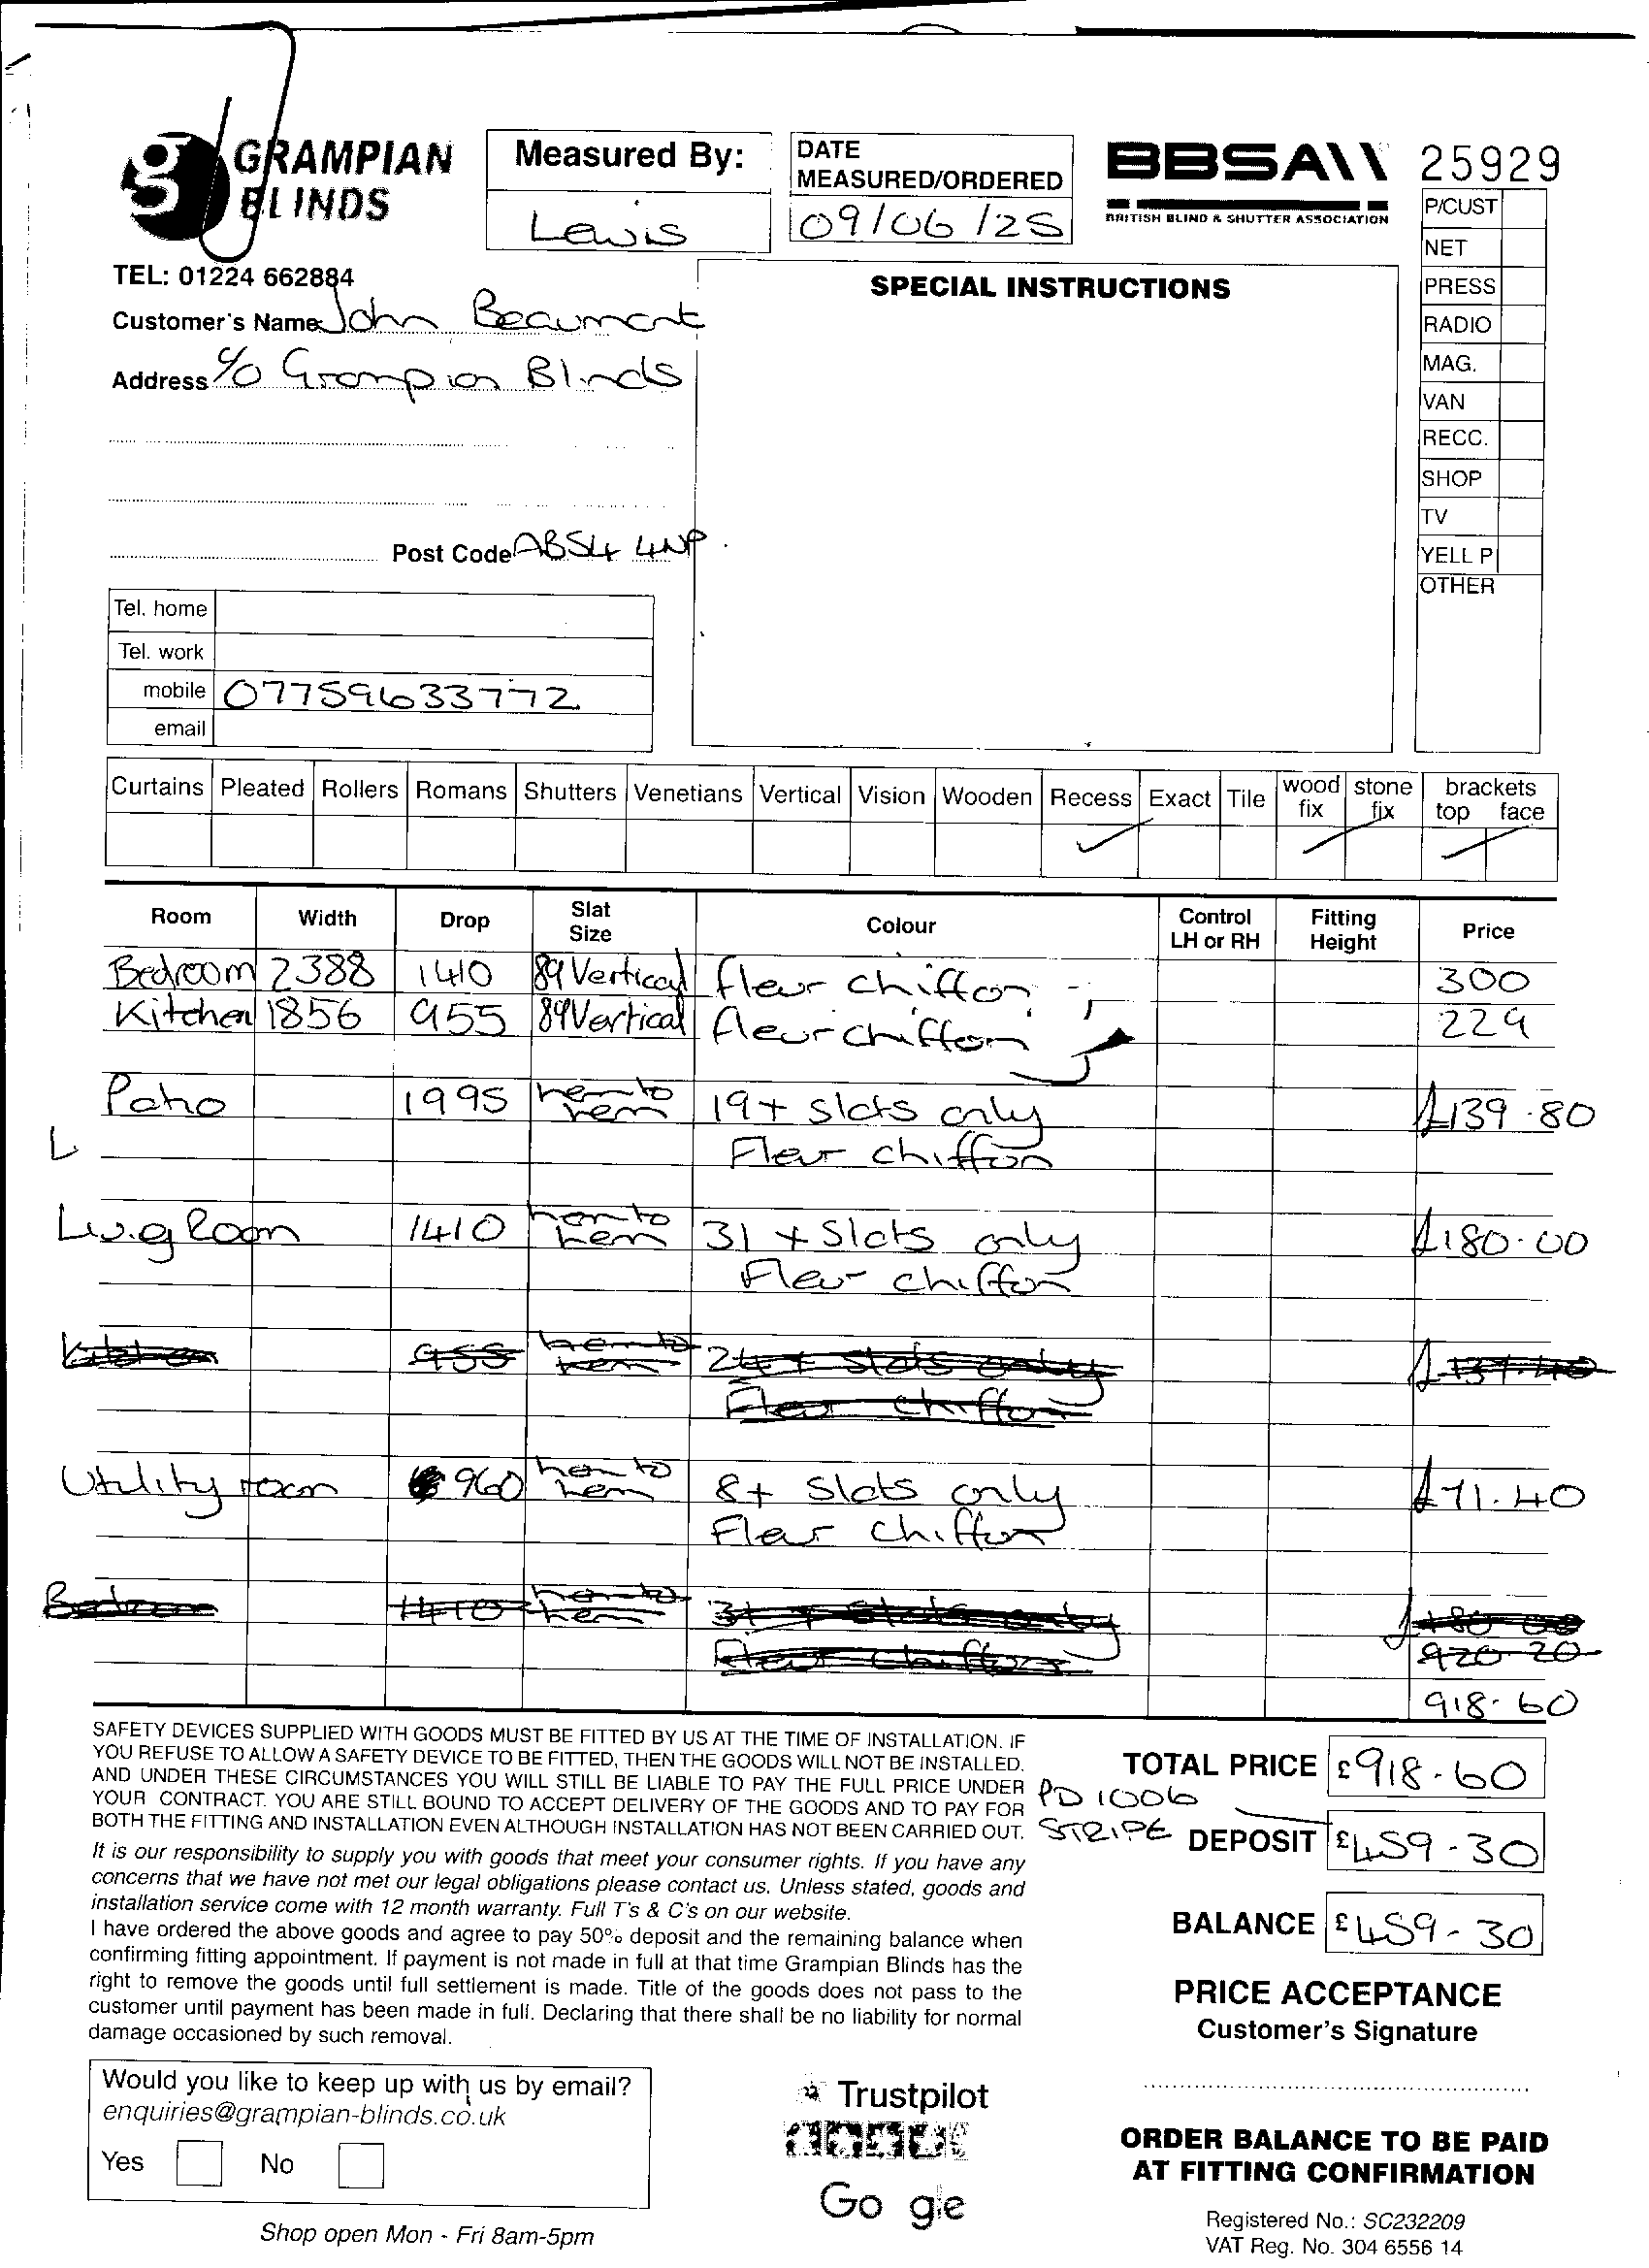 GRAMPIAN
BLINDS
Measured By:
Lewis
DATE
MEASURED/ORDERED
09/06/25
BBSA
BRITISH BLIND & SHUTTER ASSOCIATION
25929
P/CUST
NET
PRESS
RADIO
MAG.
VAN
RECC.
SHOP
TV
YELL P
OTHER
TEL: 01224 662884
Customer's Name John Beaumont
Address c/o Grampian Blinds
Post Code AB54 4NP
SPECIAL INSTRUCTIONS
Tel. home
Tel. work
mobile 07759633772
email
Curtains Pleated Rollers Romans Shutters Venetians Vertical Vision Wooden Recess Exact Tile wood fix stone fix brackets top face
Room Width Drop Slat Size Colour Control LH or RH Fitting Height Price
Bedroom 2388 1410 89 Vertical fleur chiffon 300
Kitchen 1856 955 89 Vertical fleur chiffon 229
Patio 1995 hem to hem 19+ slats only £139.80
L Fleur chiffon
Living Room 1410 hem to hem 31 + slats only £180.00
Fleur chiffon
Kitchen 955 hem to hem 24 + slats only
Fleur chiffon
Utility room 960 hem to hem 8+ slats only £71.40
Fleur chiffon
Bedroom 1410 hem to hem 31 + slats only £180.00
Fleur chiffon 920.20
918.60
SAFETY DEVICES SUPPLIED WITH GOODS MUST BE FITTED BY US AT THE TIME OF INSTALLATION. IF
YOU REFUSE TO ALLOW A SAFETY DEVICE TO BE FITTED, THEN THE GOODS WILL NOT BE INSTALLED.
AND UNDER THESE CIRCUMSTANCES YOU WILL STILL BE LIABLE TO PAY THE FULL PRICE UNDER
YOUR CONTRACT. YOU ARE STILL BOUND TO ACCEPT DELIVERY OF THE GOODS AND TO PAY FOR
BOTH THE FITTING AND INSTALLATION EVEN ALTHOUGH INSTALLATION HAS NOT BEEN CARRIED OUT.
It is our responsibility to supply you with goods that meet your consumer rights. If you have any
concerns that we have not met our legal obligations please contact us. Unless stated, goods and
installation service come with 12 month warranty. Full T's & C's on our website.
I have ordered the above goods and agree to pay 50% deposit and the remaining balance when
confirming fitting appointment. If payment is not made in full at that time Grampian Blinds has the
right to remove the goods until full settlement is made. Title of the goods does not pass to the
customer until payment has been made in full. Declaring that there shall be no liability for normal
damage occasioned by such removal.
TOTAL PRICE £918.60
PD 1006
STRIPE
DEPOSIT £459-30
BALANCE £459-30
PRICE ACCEPTANCE
Customer's Signature
Would you like to keep up with us by email?
enquiries@grampian-blinds.co.uk
Yes No
Shop open Mon - Fri 8am-5pm
Trustpilot
Go gle
ORDER BALANCE TO BE PAID
AT FITTING CONFIRMATION
Registered No.: SC232209
VAT Reg. No. 304 6556 14